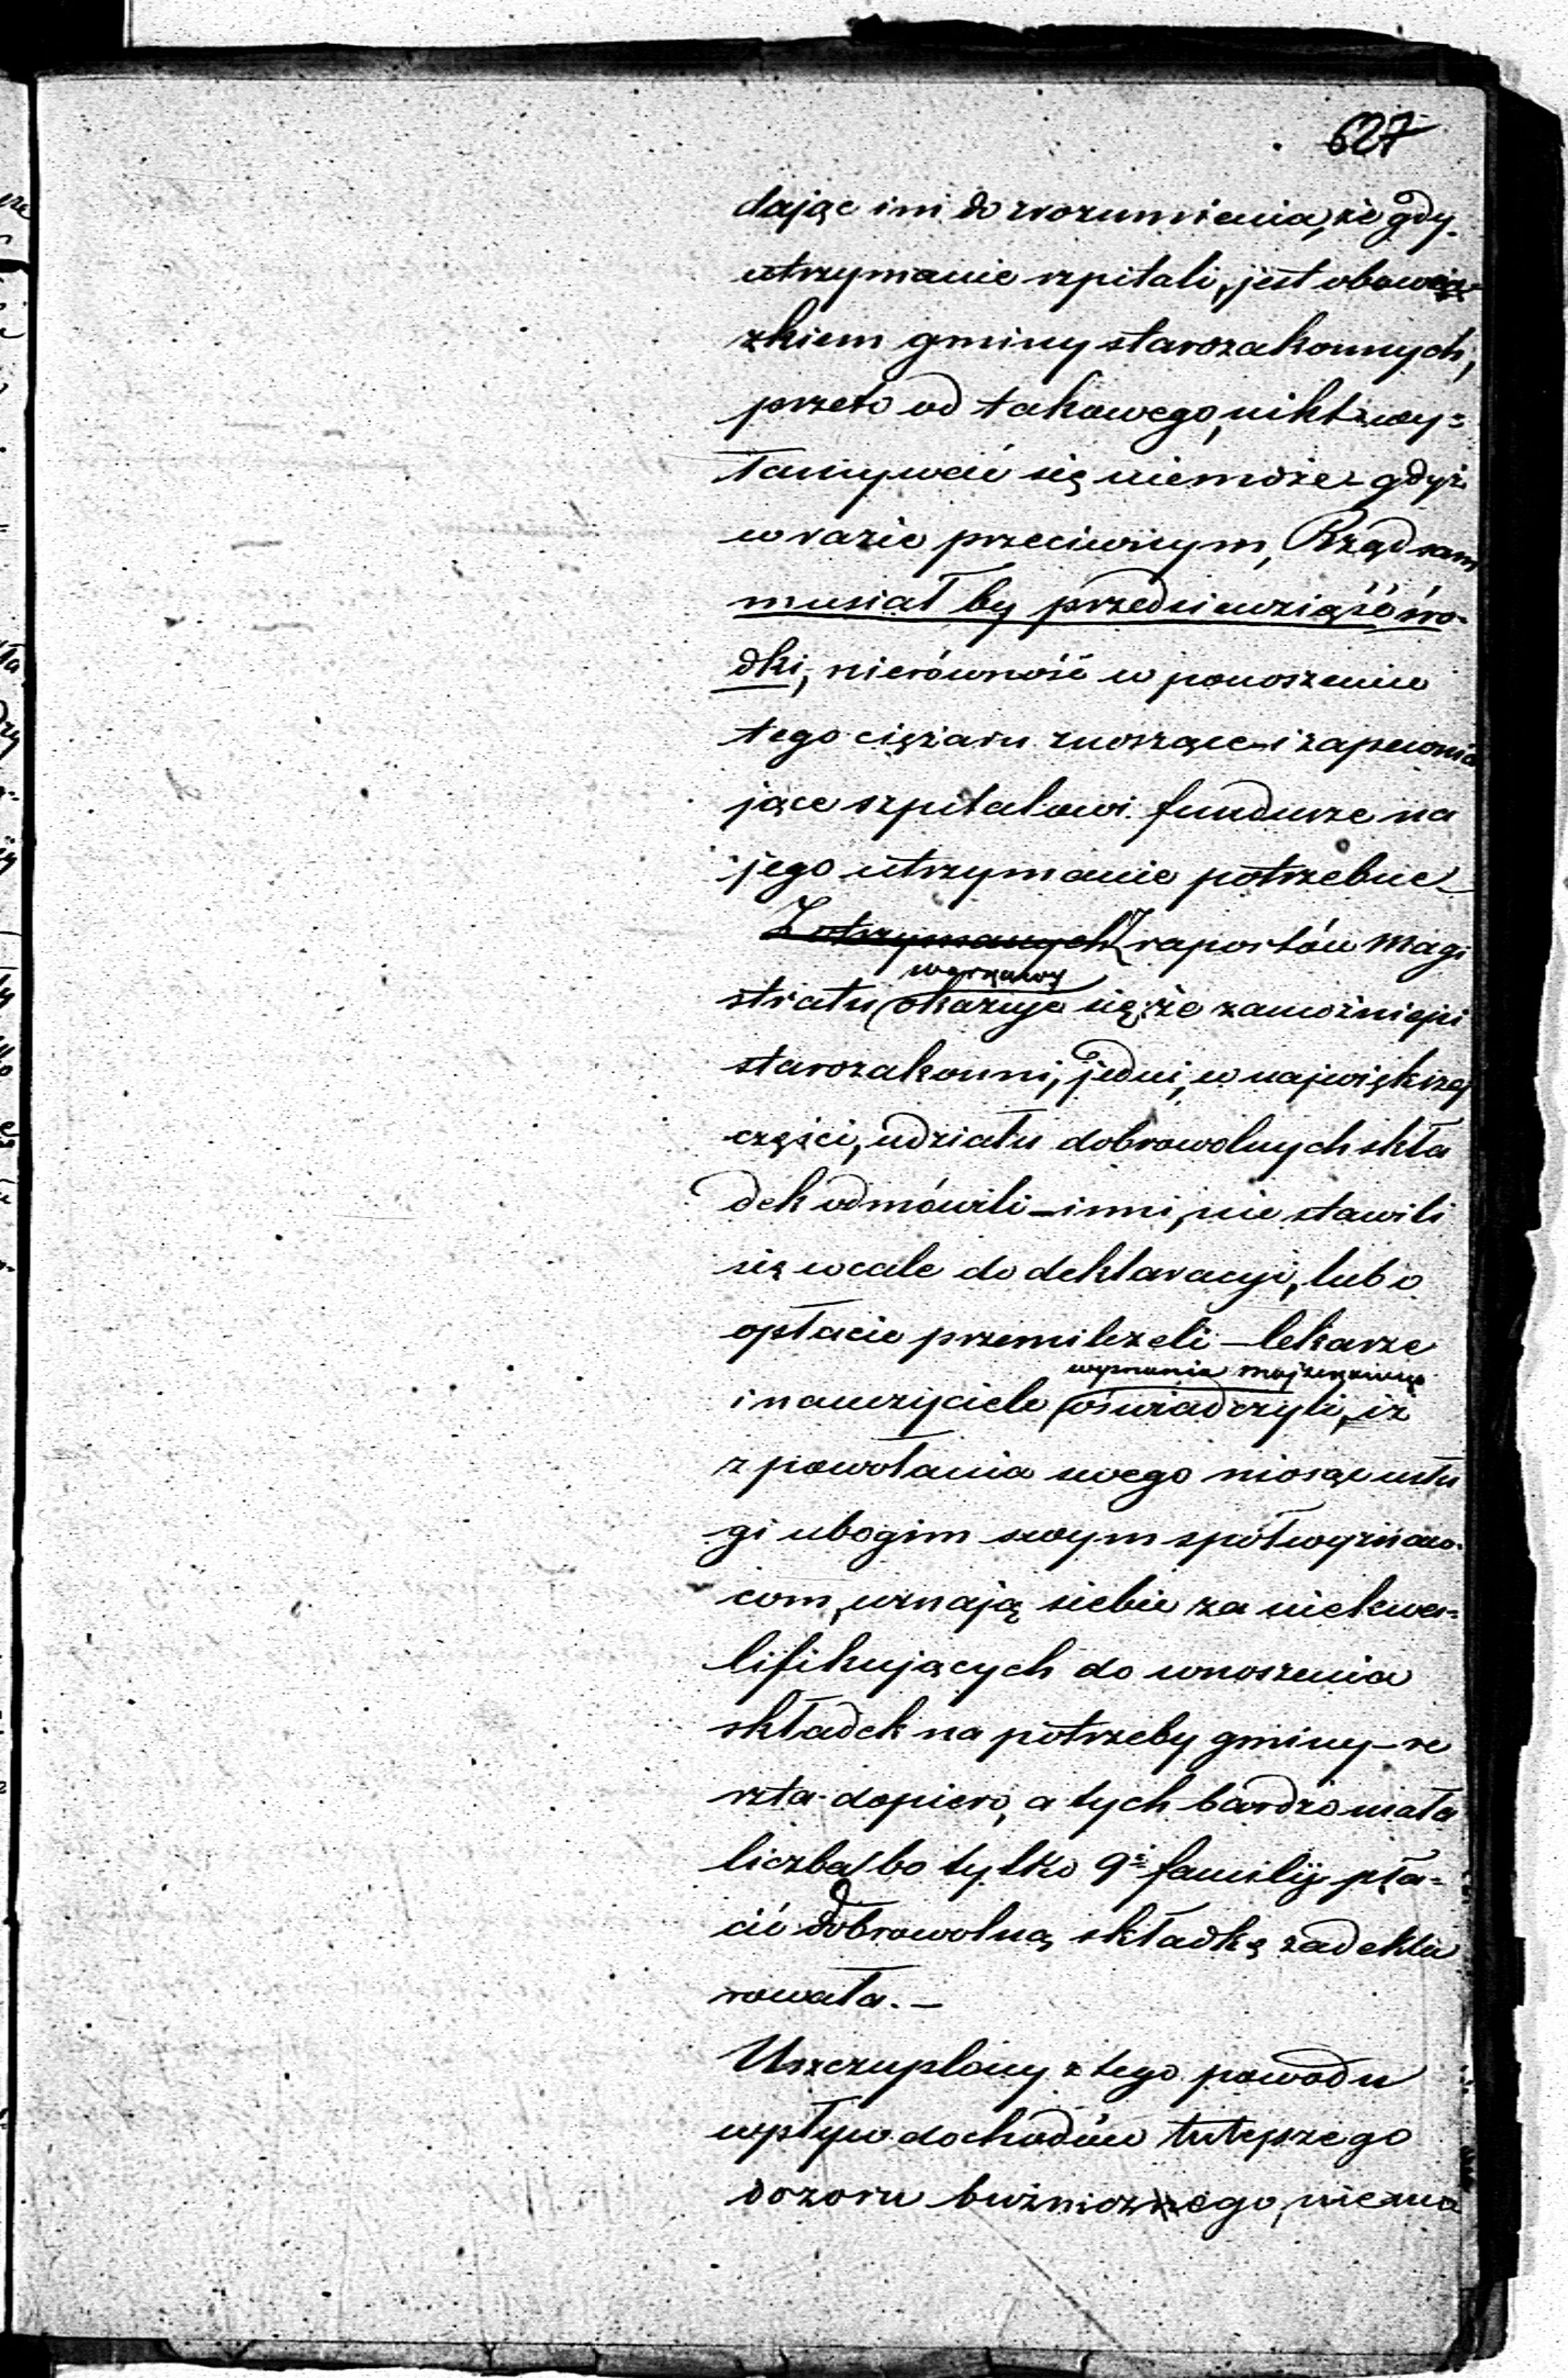 627
dając im do zrozumienia, że gdy
utrzymanie szpitali, jest obowią-
zkiem gminy starozakonnych,
przeto od takowego, nikt wy=
łamywać się niemoże – gdyż
w razie przeciwnym, Rząd sam
musiał by przedsięwziąść śro-
dki, nierówność w ponoszeniu
tego ciężaru znoszące – i zapewnia
jące szpitalowi fundusze na
jego utrzymanie potrzebne –
Z otrzymanych Z raportów Magi
warszawy
stratu okazuje się, że zamożniejsi
starozakonni, jedni, w największej
części, udziału dobrowolnych skła
dek odmówili – inni, nie stawili
się wcale do deklaracyi, lub o
opłacie przemilczeli – lekarze
wyznania mojżeszowego
i nauczyciele oświadczyli, iż
z powołania swego niosąc usłu
gi ubogim swym spółwyznaw-
com, uznają siebie za niekwa=
lifikujących do wnoszenia
składek na potrzeby gminy – re
szta dopiero, a tych bardzo mała
liczba bo tylko 9 familij pła=
cić dobrowolną składkę zadekla
rowała. –
Uszczuplony z tego powodu
wpływ dochodów tutejszego
dozoru bużnicznego, niema